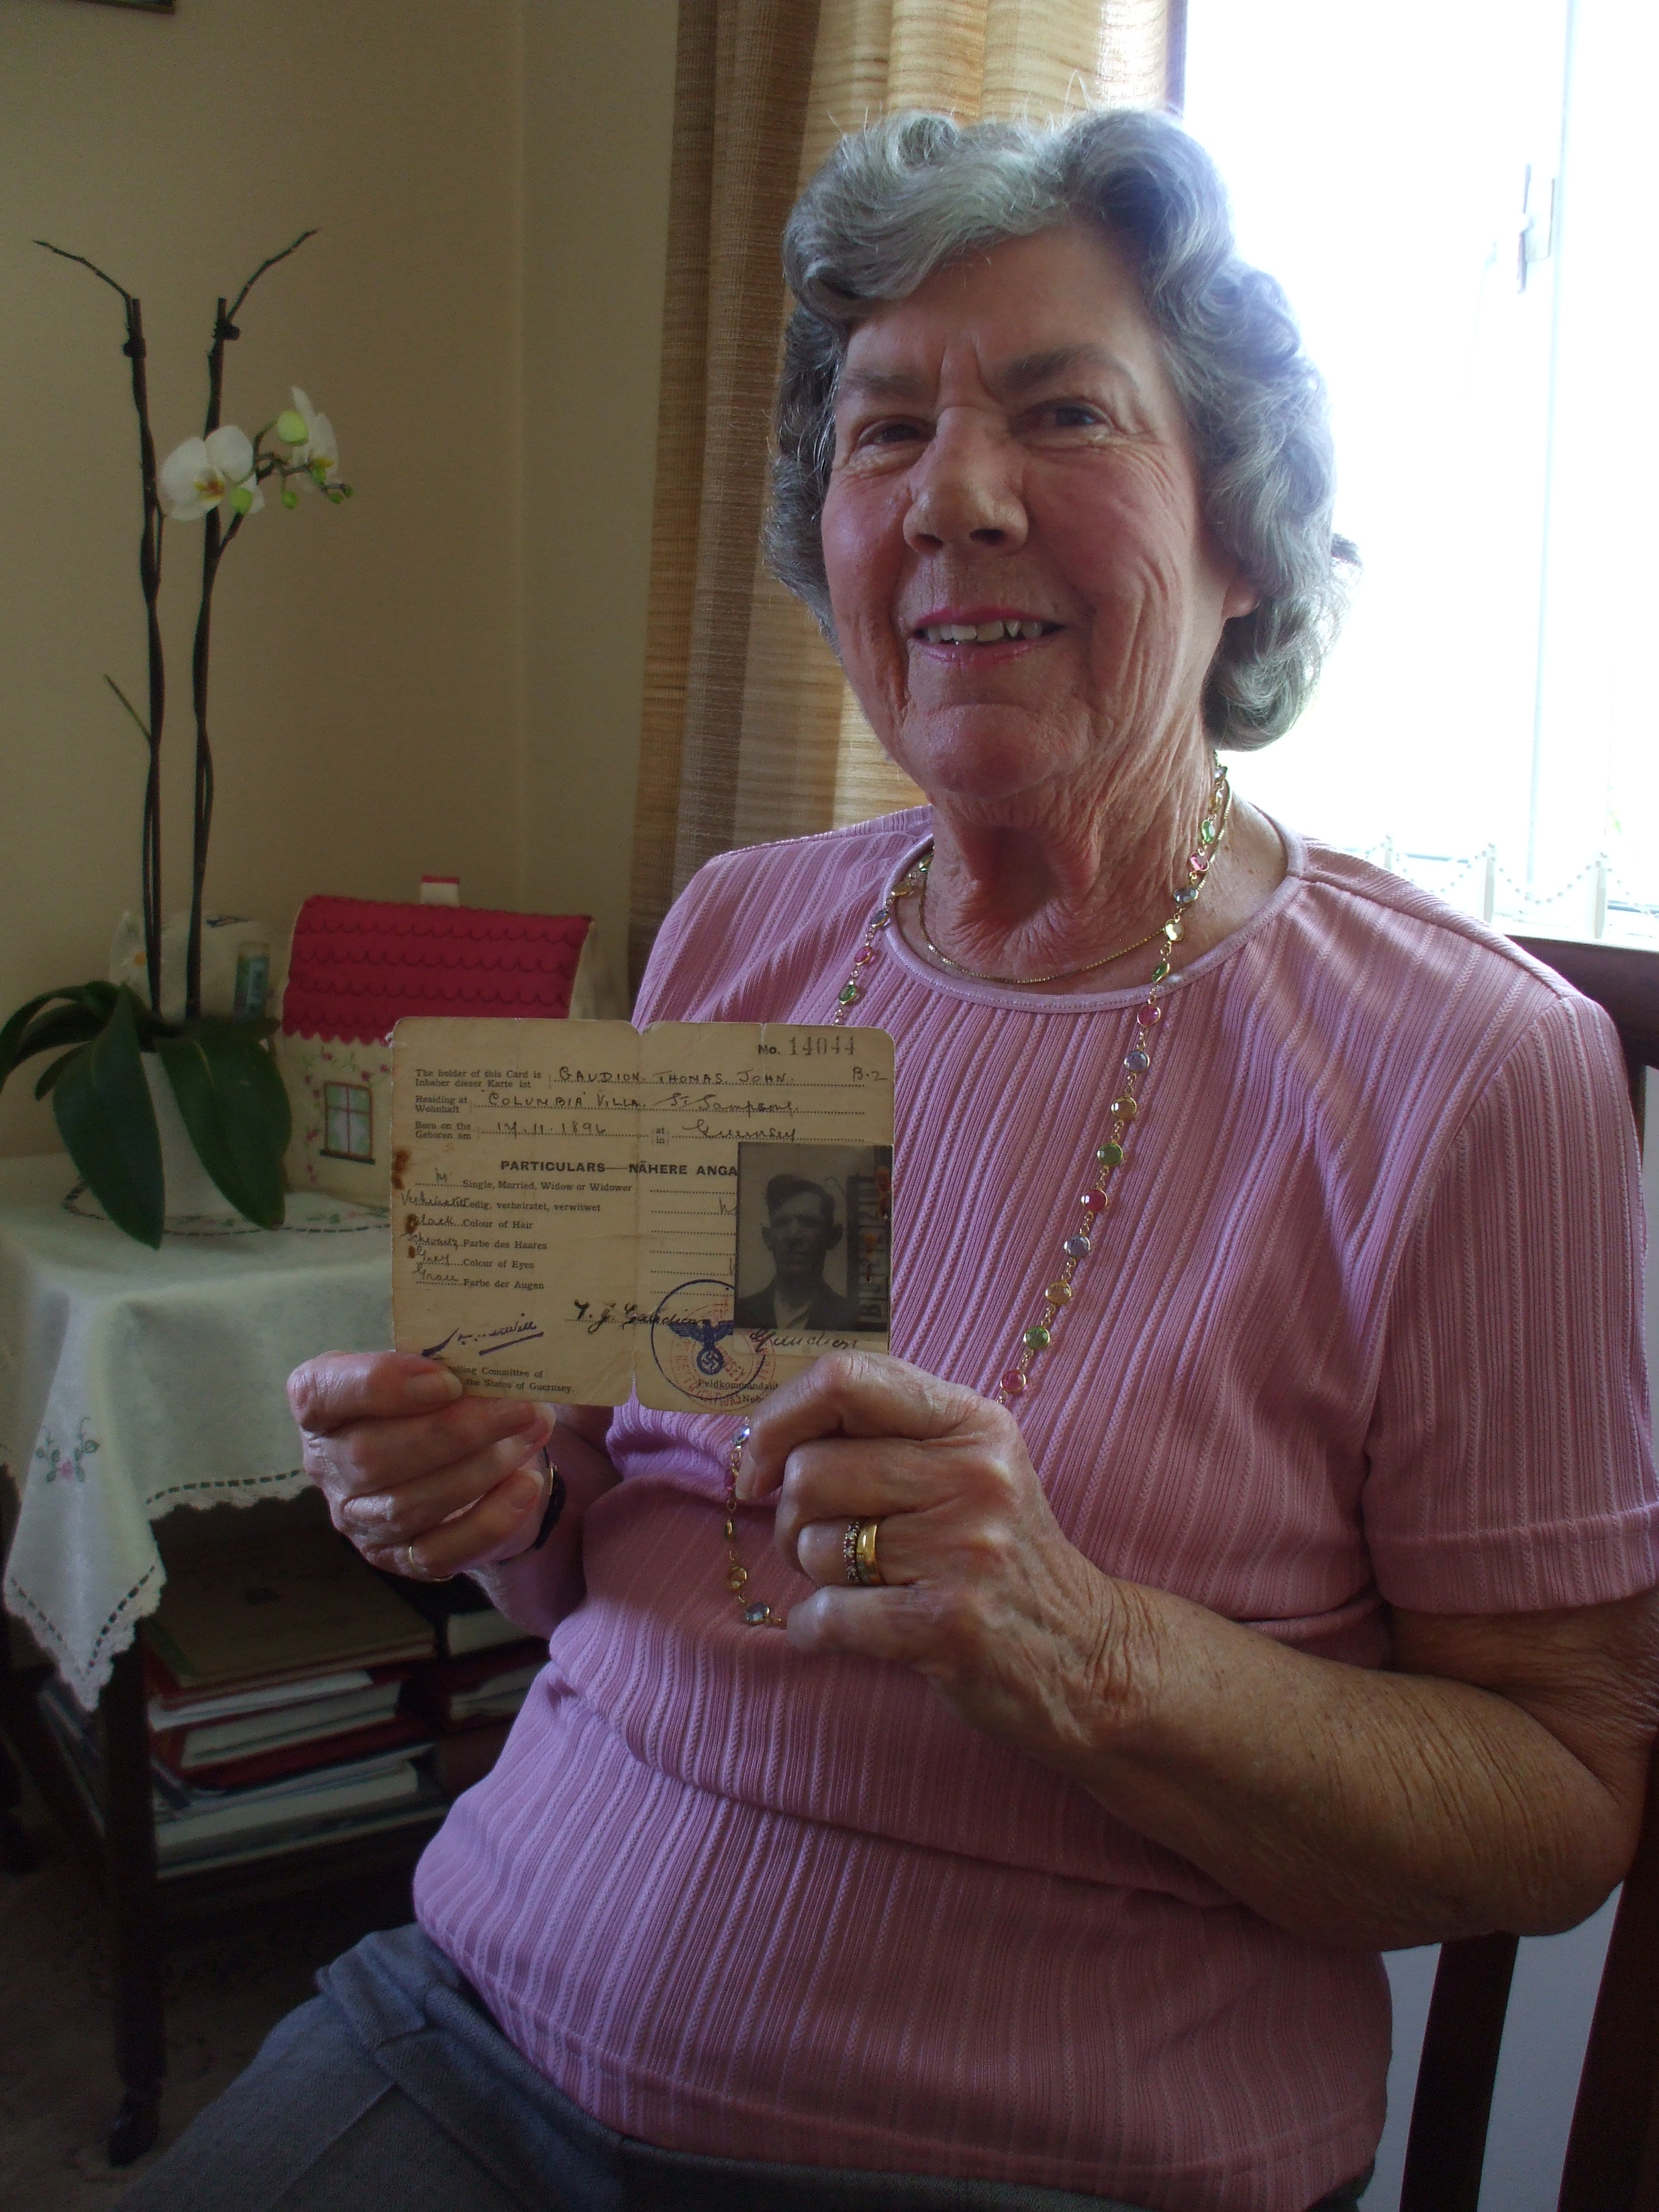 No. 14044
The holder of this Card is
Inhaber dieser Karte ist
GAUDION. THOMAS. JOHN. B.2
Residing at
Wohnhaft
'COLUMBIA' VILLA. St Sampsons.
Born on the
Geboren am
11.1896
at
in
Guernsey
PARTICULARS—NÄHERE ANGA
M Single, Married, Widow or Widower
Verheiratet edig, verheiratet, verwitwet
Black Colour of Hair
Schwarz Farbe des Haares
Grey Colour of Eyes
Grau Farbe der Augen
T. J. Gaudion
Gaudion
olling Committee of
the States of Guernsey.
Feldkommandant
Neb